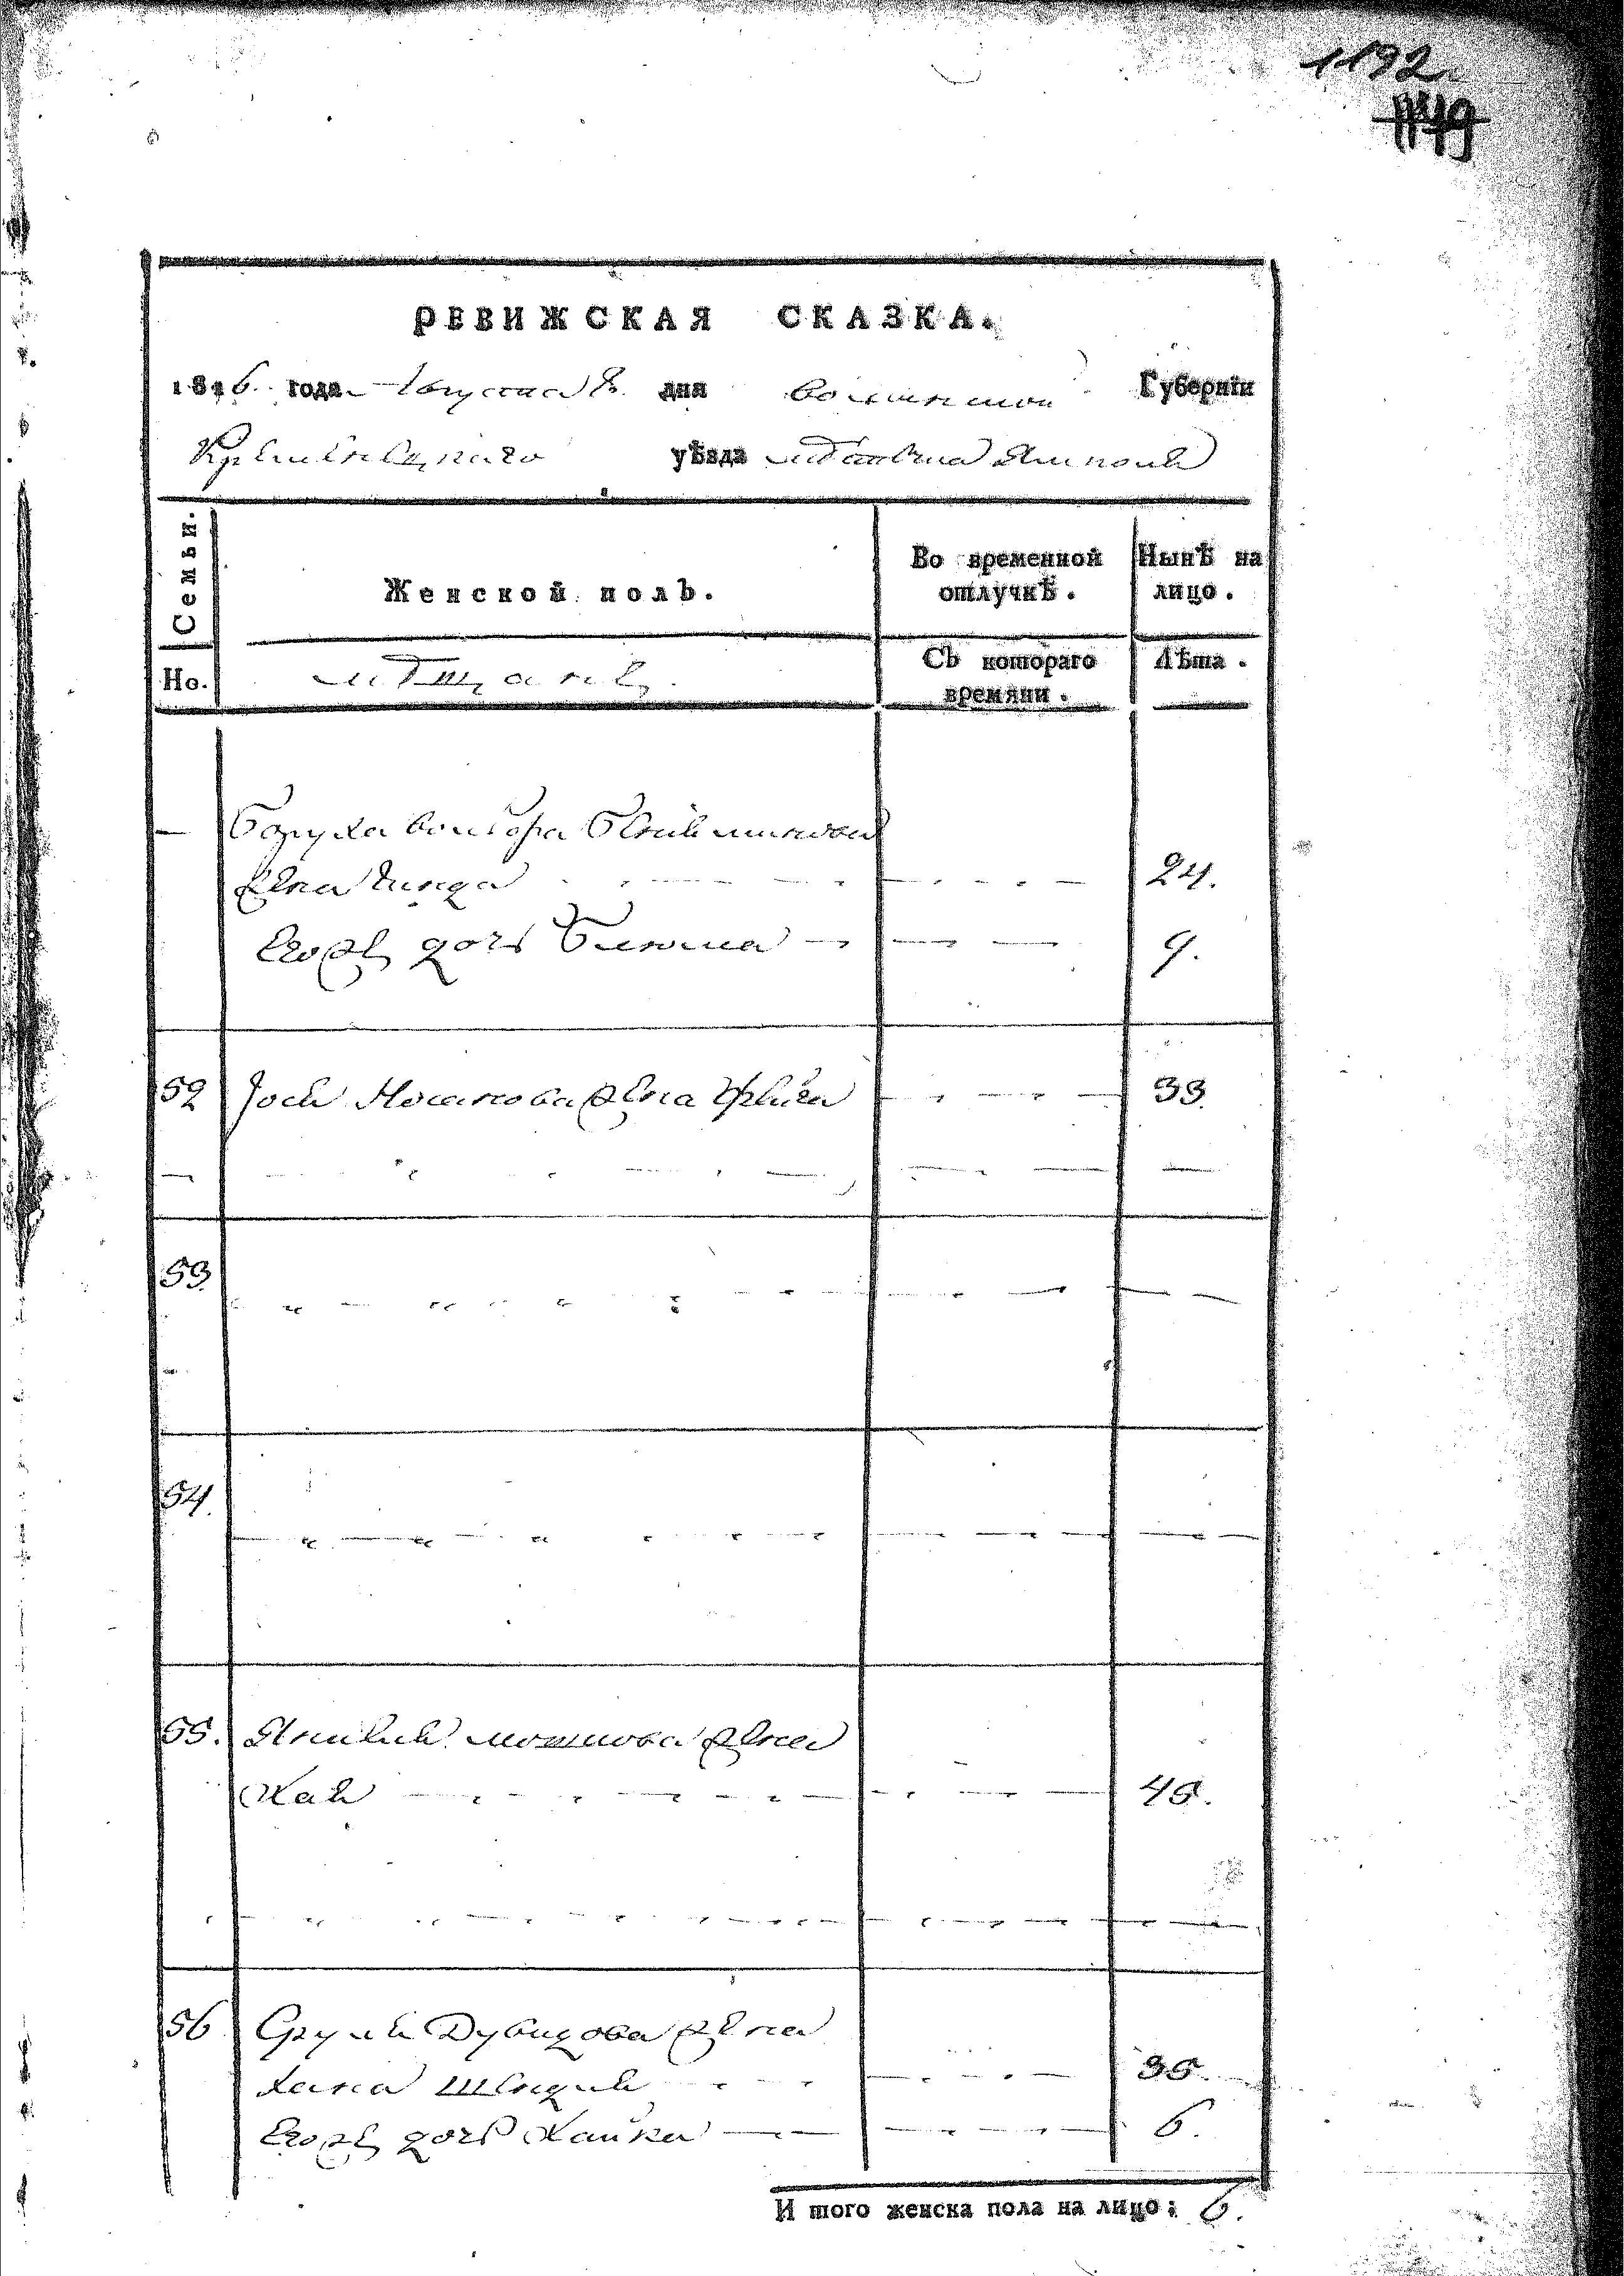 1192
1149
РЕВИЖСКАЯ СКАЗКА.
1816 года Августа 8 дня Волынской Губерніи
Кременецкаго уѣзда мѣстечка Ямполя
Семьи.
Женской полъ.
Во временной отлучкѣ.
Нынѣ на лицо.
Но.
мѣщанъ
Съ котораго времяни.
Лѣта.
Боруха Вольфа
жена 24.
Его жъ дочь 9.
52 Іося Мошкова жена 33.
53.
54.
55. Янкеля Мошкова жена
Хая 45.
56 Сруля Дувидова жена
Хана Шендля 35.
Его жъ дочь Хайка 6.
И того женска пола на лицо: 6.